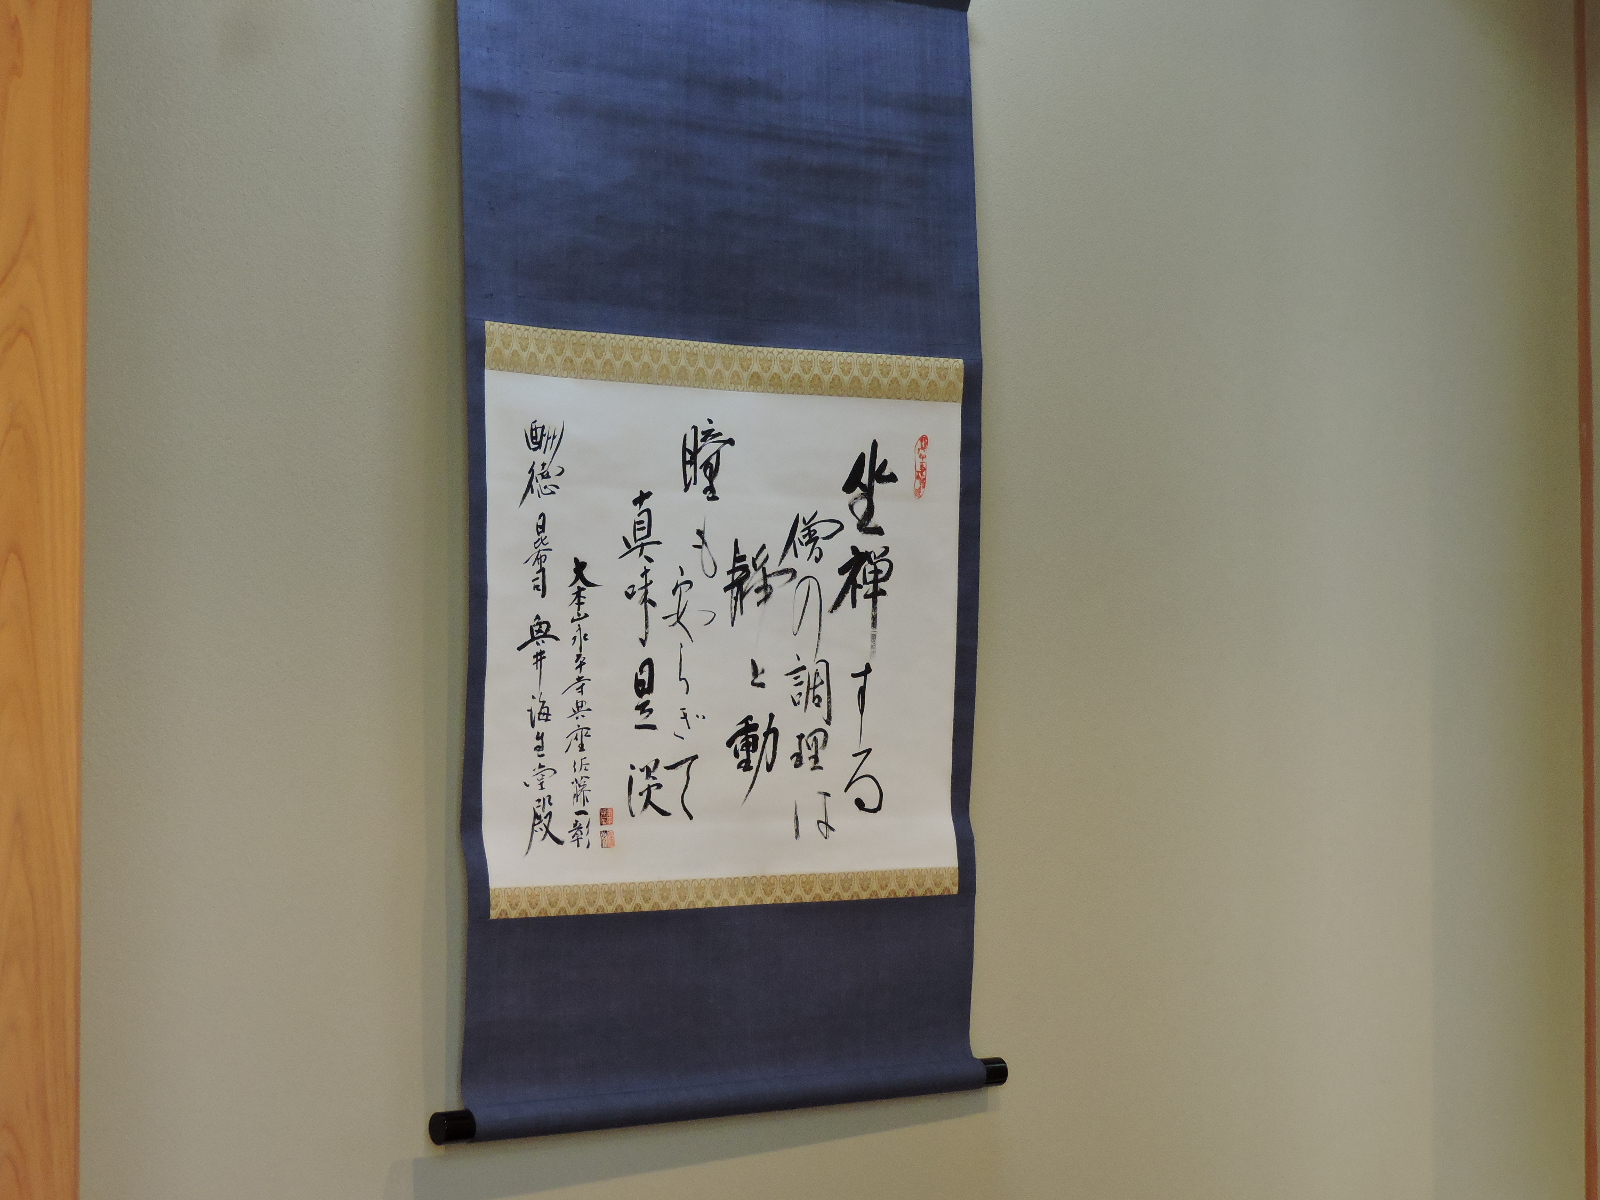 坐禅する
僧の調理は
静と動
瞳も
安らぎて
真味是淡
大本山永平寺典座佐藤一彰
酬徳 昆布司 奥井海生堂殿